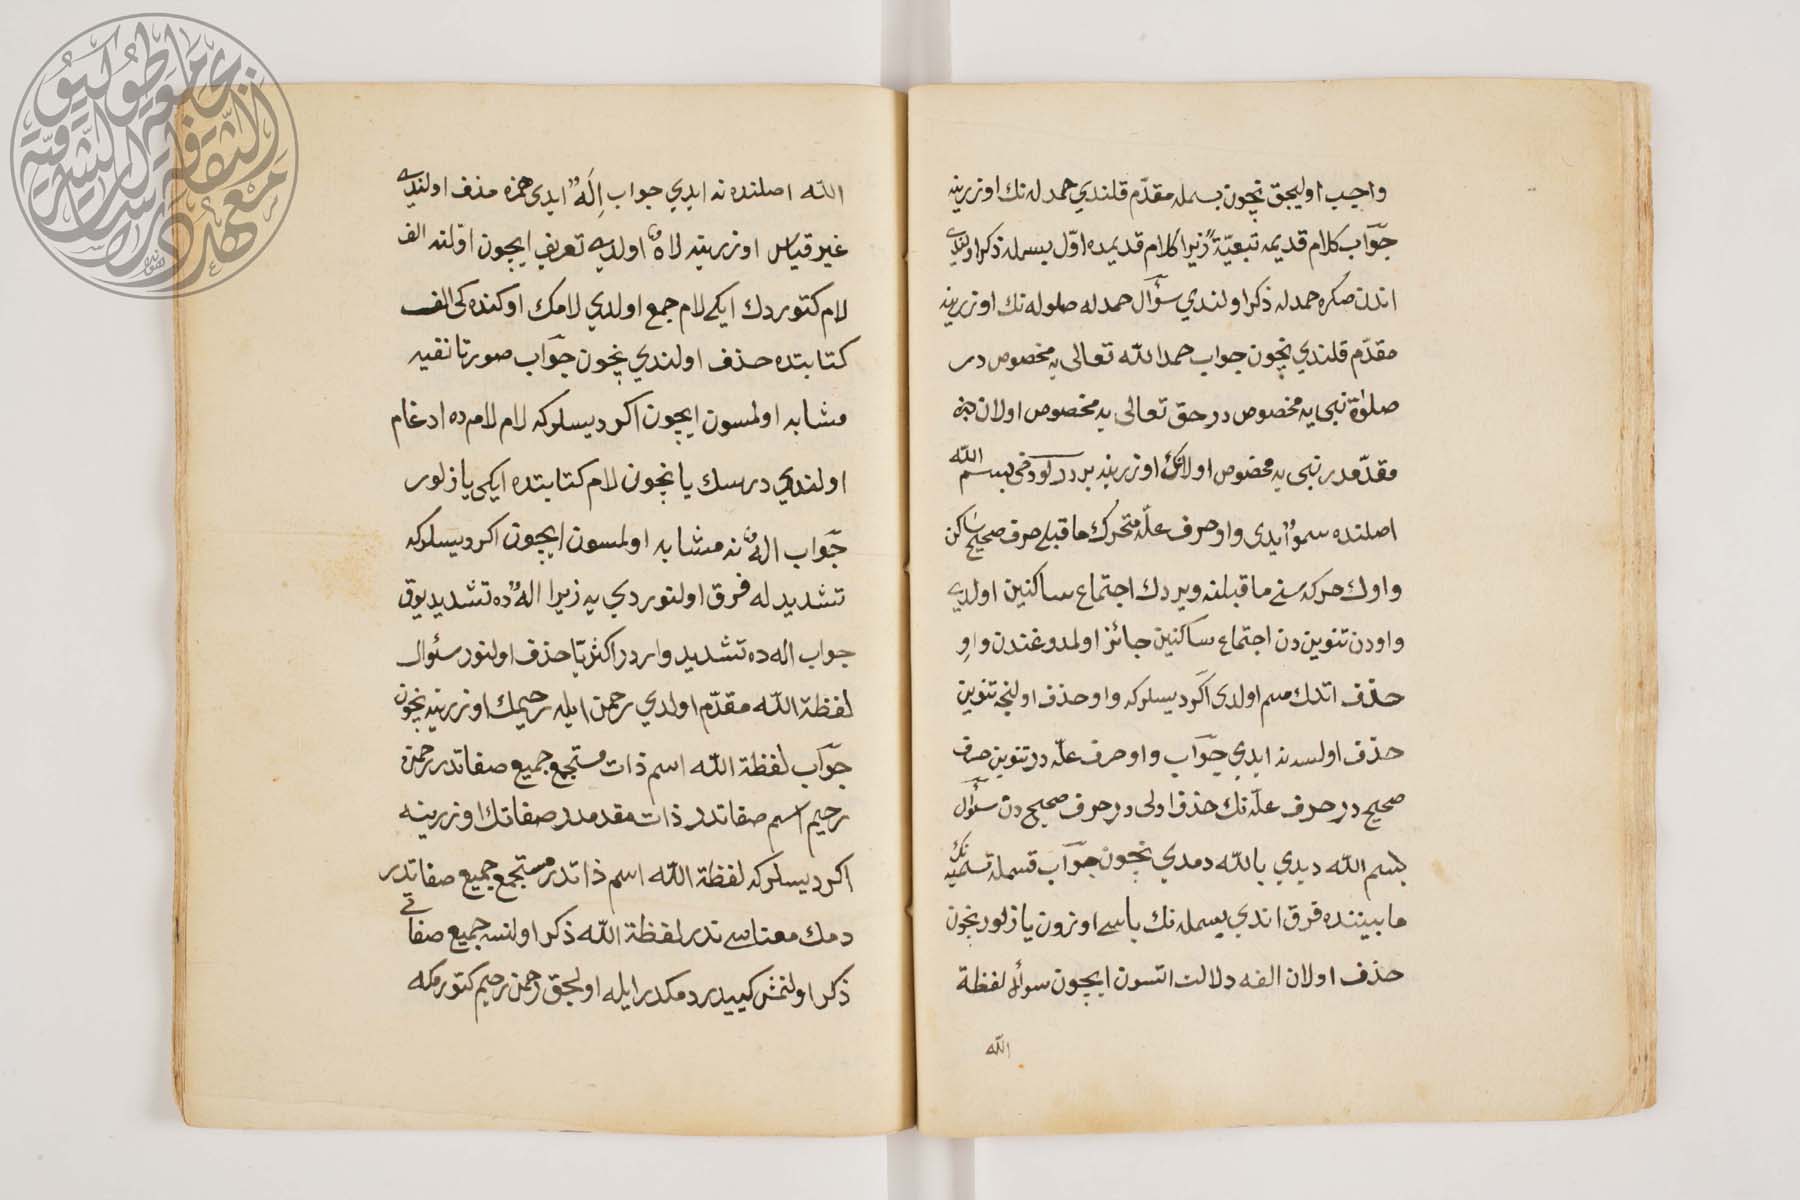 واجب اوليجق نيچون بسمله مقدّم قلندي حمد له نك اوزرينه
جوآب كلام قديمه تبعيّةً زيرا كلام قديمده اوّل بسمله ذكر اولندي
اندن صكره حمدله ذكر اولندي سؤآل حمدله صلوله نك اوزرينه
مقدّم قلندي نچون جواب حمد الله تعالى يه مخصوص در
صلوٰة نبى يه مخصوص در حق تعالى يه مخصوص اولان
مقدّمدر نبى يه مخصوص اولانك اوزرينه بسم الله
اصلنده سموٌ ايدى واو حرف علّه متحرك ماقبلى حرف صحيح ساكن
واوك حركه سنى ماقبلنه ويردك اجتماع ساكنين اولدي
واودن تنوين دن اجتماع ساكنين جائز اولمدوغندن واوِ
حذف اتدك سم اولدى اكر ديسلركه واو حذف اولنجه تنوين
حذف اولسه نه ايدي جوآب واو حرف علّه در تنوين حرف
صحيح در حرف علّه نك حذفى اولى در حرف صحيح دن سئوآل
بسم الله ديدي بالله دمدي نچون جوآب قسمله تسميه نك
مابيننده فرق اندي بسمله نك باسى اوزون يازلور نچون
حذف اولان الفه دلالت اتسون ايچون سوأل لفظة
الله
الله اصلنده نه ايدي جواب اِلَهٌ ايدى همزه حذف اولندي
غير قياس اوزرينه لاهٌ اولدي تعريف ايچون اوّلنه الف
لام كتوردك ايكى لام جمع اولدي لامك اوكنده كى الف
كتابتده حذف اولندي نچون جوآب صورتا نفيه
مشابه اولمسون ايچون اكر ديسلركه لام لامده ادغام
اولندي درسك يا نچون لام كتابتده ايكى يازلور
جوآب الهٌ نه مشابه اولمسون ايچون اكر ديسلركه
تشديد له فرق اولنوردي يه زيرا الهٌ ده تشديد يوق
جواب اله ده تشديد وار در اكثريّا حذف اولنور سئوال
لفظة الله مقدّم اولدي رحمن ايله رحيمك اوزرينه نچون
جوآب لفظة الله اسم ذات مستجمع جميع صفاتدر رحمن
رحيم اسم صفاتدر ذات مقدمدر صفاتك اوزرينه
اكر ديسلركه لفظة الله اسم ذاتدر مستجمع جميع صفاتدر
دمك معناسى ندر لفظة الله ذكر اولنسه جميع صفاتى
ذكر اولنمش كيبيدر دمكدر ايله اوليجق رحمن رحيم كتورمكه